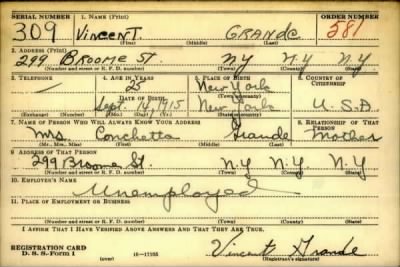 SERIAL NUMBER 1. NAME (Print) ORDER NUMBER
309 VINCENT. GRANDE 581
(First) (Middle) (Last)
2. ADDRESS (Print)
299 BROOME ST. N.Y N.Y N.Y
(Number and street or R. F. D. number) (Town) (County) (State)
3. TELEPHONE 4. AGE IN YEARS 5. PLACE OF BIRTH 6. COUNTRY OF CITIZENSHIP
25 New York
DATE OF BIRTH (Town or county)
Sept. 14, 1915 New York U.S.A
(Exchange) (Number) (Mo.) (Day) (Yr.) (State or country)
7. NAME OF PERSON WHO WILL ALWAYS KNOW YOUR ADDRESS 8. RELATIONSHIP OF THAT PERSON
Mrs. Conchetta Grande Mother
(Mr., Mrs., Miss) (First) (Middle) (Last)
9. ADDRESS OF THAT PERSON
299 Broome St. N.Y N.Y. N.Y
(Number and street or R. F. D. number) (Town) (County) (State)
10. EMPLOYER'S NAME
Unemployed
11. PLACE OF EMPLOYMENT OR BUSINESS
(Number and street or R. F. D. number) (Town) (County) (State)
I AFFIRM THAT I HAVE VERIFIED ABOVE ANSWERS AND THAT THEY ARE TRUE.
REGISTRATION CARD
D. S. S. Form 1 16—17105 Vincent Grande
(Registrant's signature)